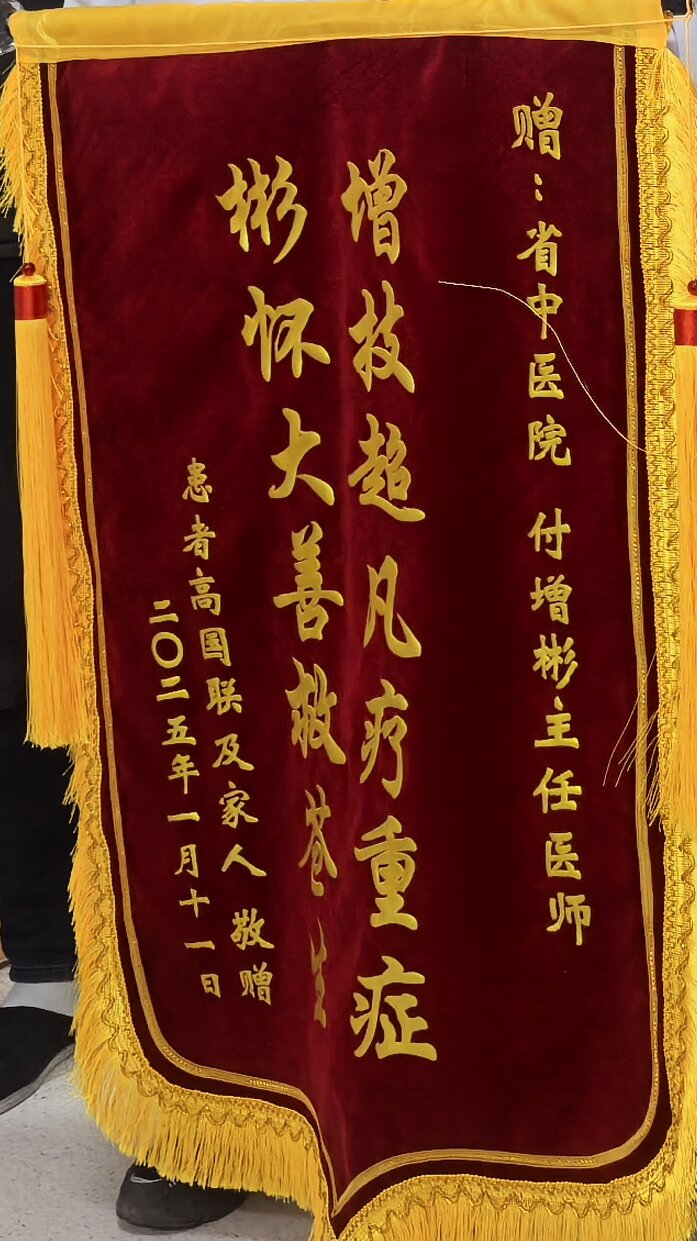 赠：省中医院 付增彬主任医师
增技超凡疗重症
彬怀大善救苍生
患者高国联及家人 敬赠
二〇二五年一月十一日